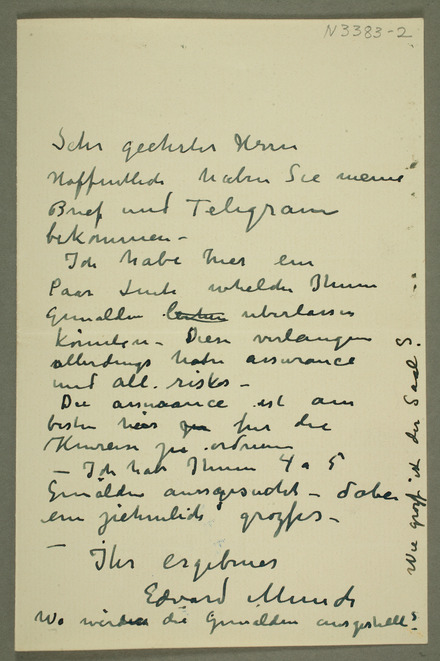 N3383-2
Sehr geehrter Herrn
Hoffentlich haben Sie meine
Brief und Telegram
bekommen –
Ich habe hier ein
Paar Leute whelche Ihnen
Gemälden uberlassen
könnten – Diese verlangen
allerdings hohe assurance
und all. risks –
Die assuaance ist am
besten hier für die
zu ordnen
– Ich hab Ihnen 4 a 5
Gemälden aussgesucht – dabei
ein ziehmlich grozses –
– Ihr ergebenes
Edvard Munch
Wo werden die Gemälden ausgestellt?
Wie grozs ist der Saal?